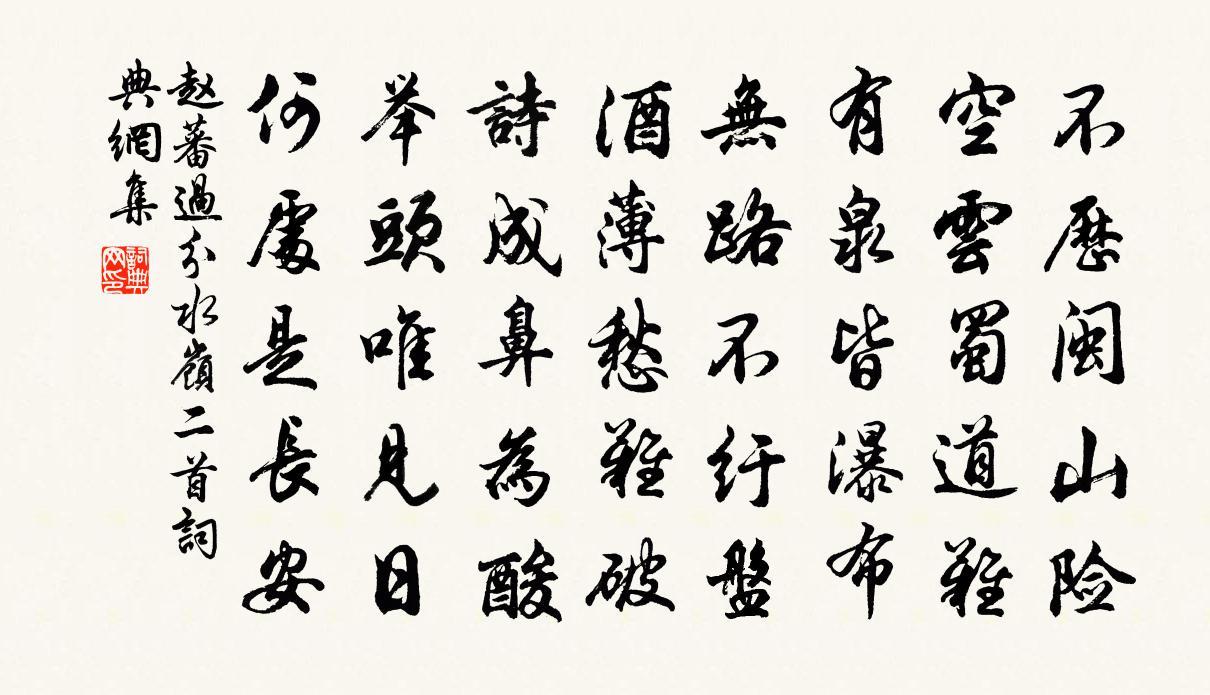 不歷闽山险
空雲蜀道難
有泉皆瀑布
無路不纡盤
酒薄愁難破
詩成鼻為酸
举頭唯見日
何處是長安
赵蕃過分水嶺二首詞
典網集
詞典網印